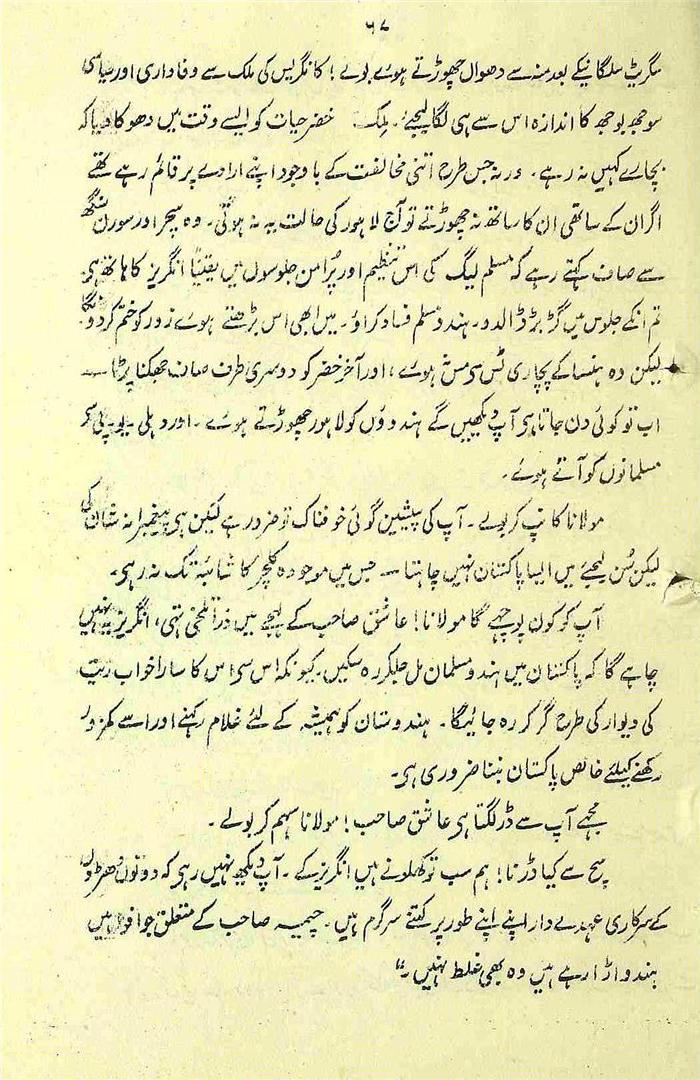 ۶۷
سگریٹ سلگانیکے بعد منہ سے دھواں چھوڑتے ہوئے بولے ! کانگریس کی ملک سے وفاداری اور سیاسی
سوجھ بوجھ کا اندازہ اس سے ہی لگا لیجئے۔ ملک خضر حیات کو ایسے وقت میں دھوکا دیا کہ
بچارے کہیں نہ رہے۔ ورنہ جس طرح اتنی مخالفت کے باوجود اپنے ارادے پر قائم رہے تھے
اگر ان کے ساتھی ان کا ساتھ نہ چھوڑتے تو آج لاہور کی حالت یہ نہ ہوتی۔ وہ سچر اور سورن سنگھ
سے صاف کہتے رہے کہ مسلم لیگ کی اس تنظیم اور پُر امن جلوسوں میں یقیناً انگریز کا ہاتھ ہی
تم انکے جلوس میں گڑ بڑ ڈالدو۔ ہندو مسلم فساد کراؤ۔ میں ابھی اس بڑھتے ہوئے زور کو ختم کردونگا
لیکن وہ ہنسا کے پجاری ٹس سی مس نہ ہوئے، اور آخر خضر کو دوسری طرف صاف جھکنا پڑا —
اب تو کوئی دن جاتا ہی آپ دیکھیں گے ہندوؤں کو لاہور چھوڑتے ہوئے۔ اور دہلی۔ یو۔ پی سی
مسلمانوں کو آتے ہوئے۔
مولانا کانپ کر بولے۔ آپ کی پیشین گوئی خوفناک تو ضرور ہے لیکن ہی پیغمبرانہ شان کی
لیکن سُن لیجئے میں ایسا پاکستان نہیں چاہتا — جس میں موجودہ کلچر کا شائبہ تک نہ رہی۔
آپ کو کون پوچھے گا مولانا! عاشق صاحب کے لہجے میں ذرا تلخی تھی، انگریز یہ نہیں
چاہے گا کہ پاکستان میں ہندو مسلمان مل جلکر رہ سکیں۔ کیونکہ اس سی اس کا سارا خواب ریت
کی دیوار کی طرح گر کر رہ جائیگا۔ ہندوستان کو ہمیشہ کے لئے غلام رکھنے اور اسے کمزور
رکھنے کیلئے خالص پاکستان بننا ضروری ہی۔
مجھے آپ سے ڈر لگتا ہی عاشق صاحب! مولانا سہم کر بولے۔
سچ سے کیا ڈرنا! ہم سب تو کھلونے ہیں انگریز کے۔ آپ دیکھ نہیں رہی کہ دونوں دھڑوں
کے سرکاری عہدے دار اپنے اپنے طور پر کتنے سرگرم ہیں۔ چیمہ صاحب کے متعلق جو افواہیں
ہندو اڑا رہے ہیں وہ بھی غلط نہیں۔"